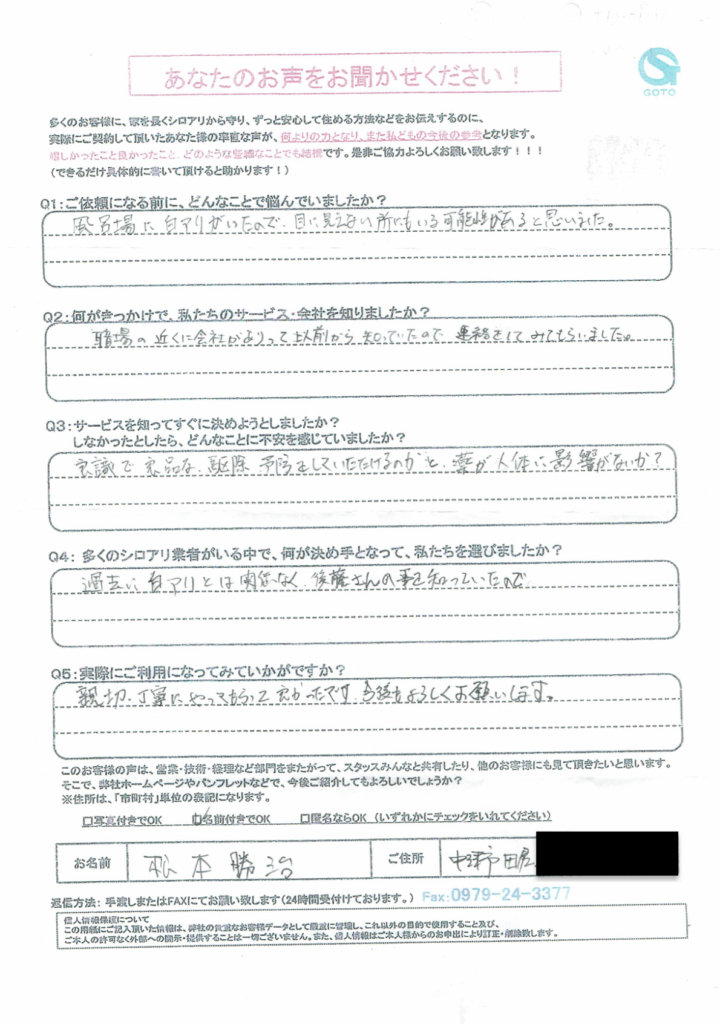 あなたのお声をお聞かせください！
GOTO
多くのお客様に、家を長くシロアリから守り、ずっと安心して住める方法などをお伝えするのに、
実際にご契約して頂いたあなた様の率直な声が、何よりの力となり、また私どもの今後の参考となります。
嬉しかったこと良かったこと、どのような些細なことでも結構です。是非ご協力よろしくお願い致します！！！
（できるだけ具体的に書いて頂けると助かります！）
Q1：ご依頼になる前に、どんなことで悩んでいましたか？
風呂場に白アリがいたので、目に見えない所にもいる可能性があると思いました。
Q2：何がきっかけで、私たちのサービス・会社を知りましたか？
職場の近くに会社がありって以前から知っていたので連絡をしてみてもらいました。
Q3：サービスを知ってすぐに決めようとしましたか？
しなかったとしたら、どんなことに不安を感じていましたか？
良識で良品な、駆除 予防をしていただけるのかと、薬が人体に影響がないか？
Q4： 多くのシロアリ業者がいる中で、何が決め手となって、私たちを選びましたか？
過去に白アリとは関係なく、後藤さんの事を知っていたので
Q5：実際にご利用になってみていかがですか？
親切、丁寧にやってもらって良かったです。今後もよろしくお願いします。
このお客様の声は、営業・技術・経理など部門をまたがって、スタッスみんなと共有したり、他のお客様にも見て頂きたいと思います。
そこで、弊社ホームページやパンフレットなどで、今後ご紹介してもよろしいでしょうか？
※住所は、「市町村」単位の表記になります。
□写真付きでOK ☑名前付きでOK □匿名ならOK（いずれかにチェックをいれてください）
お名前 松本勝治 ご住所 中津市田尻
返信方法： 手渡しまたはFAXにてお願い致します（24時間受付けております。） Fax:0979-24-3377
個人情報保護について
この用紙にご記入頂いた情報は、弊社の貴重なお客様データとして厳重に管理し、これ以外の目的で使用すること及び、
ご本人の許可なく外部への開示・提供することは一切ございません。また、個人情報はご本人様からのお申出により訂正・削除致します。